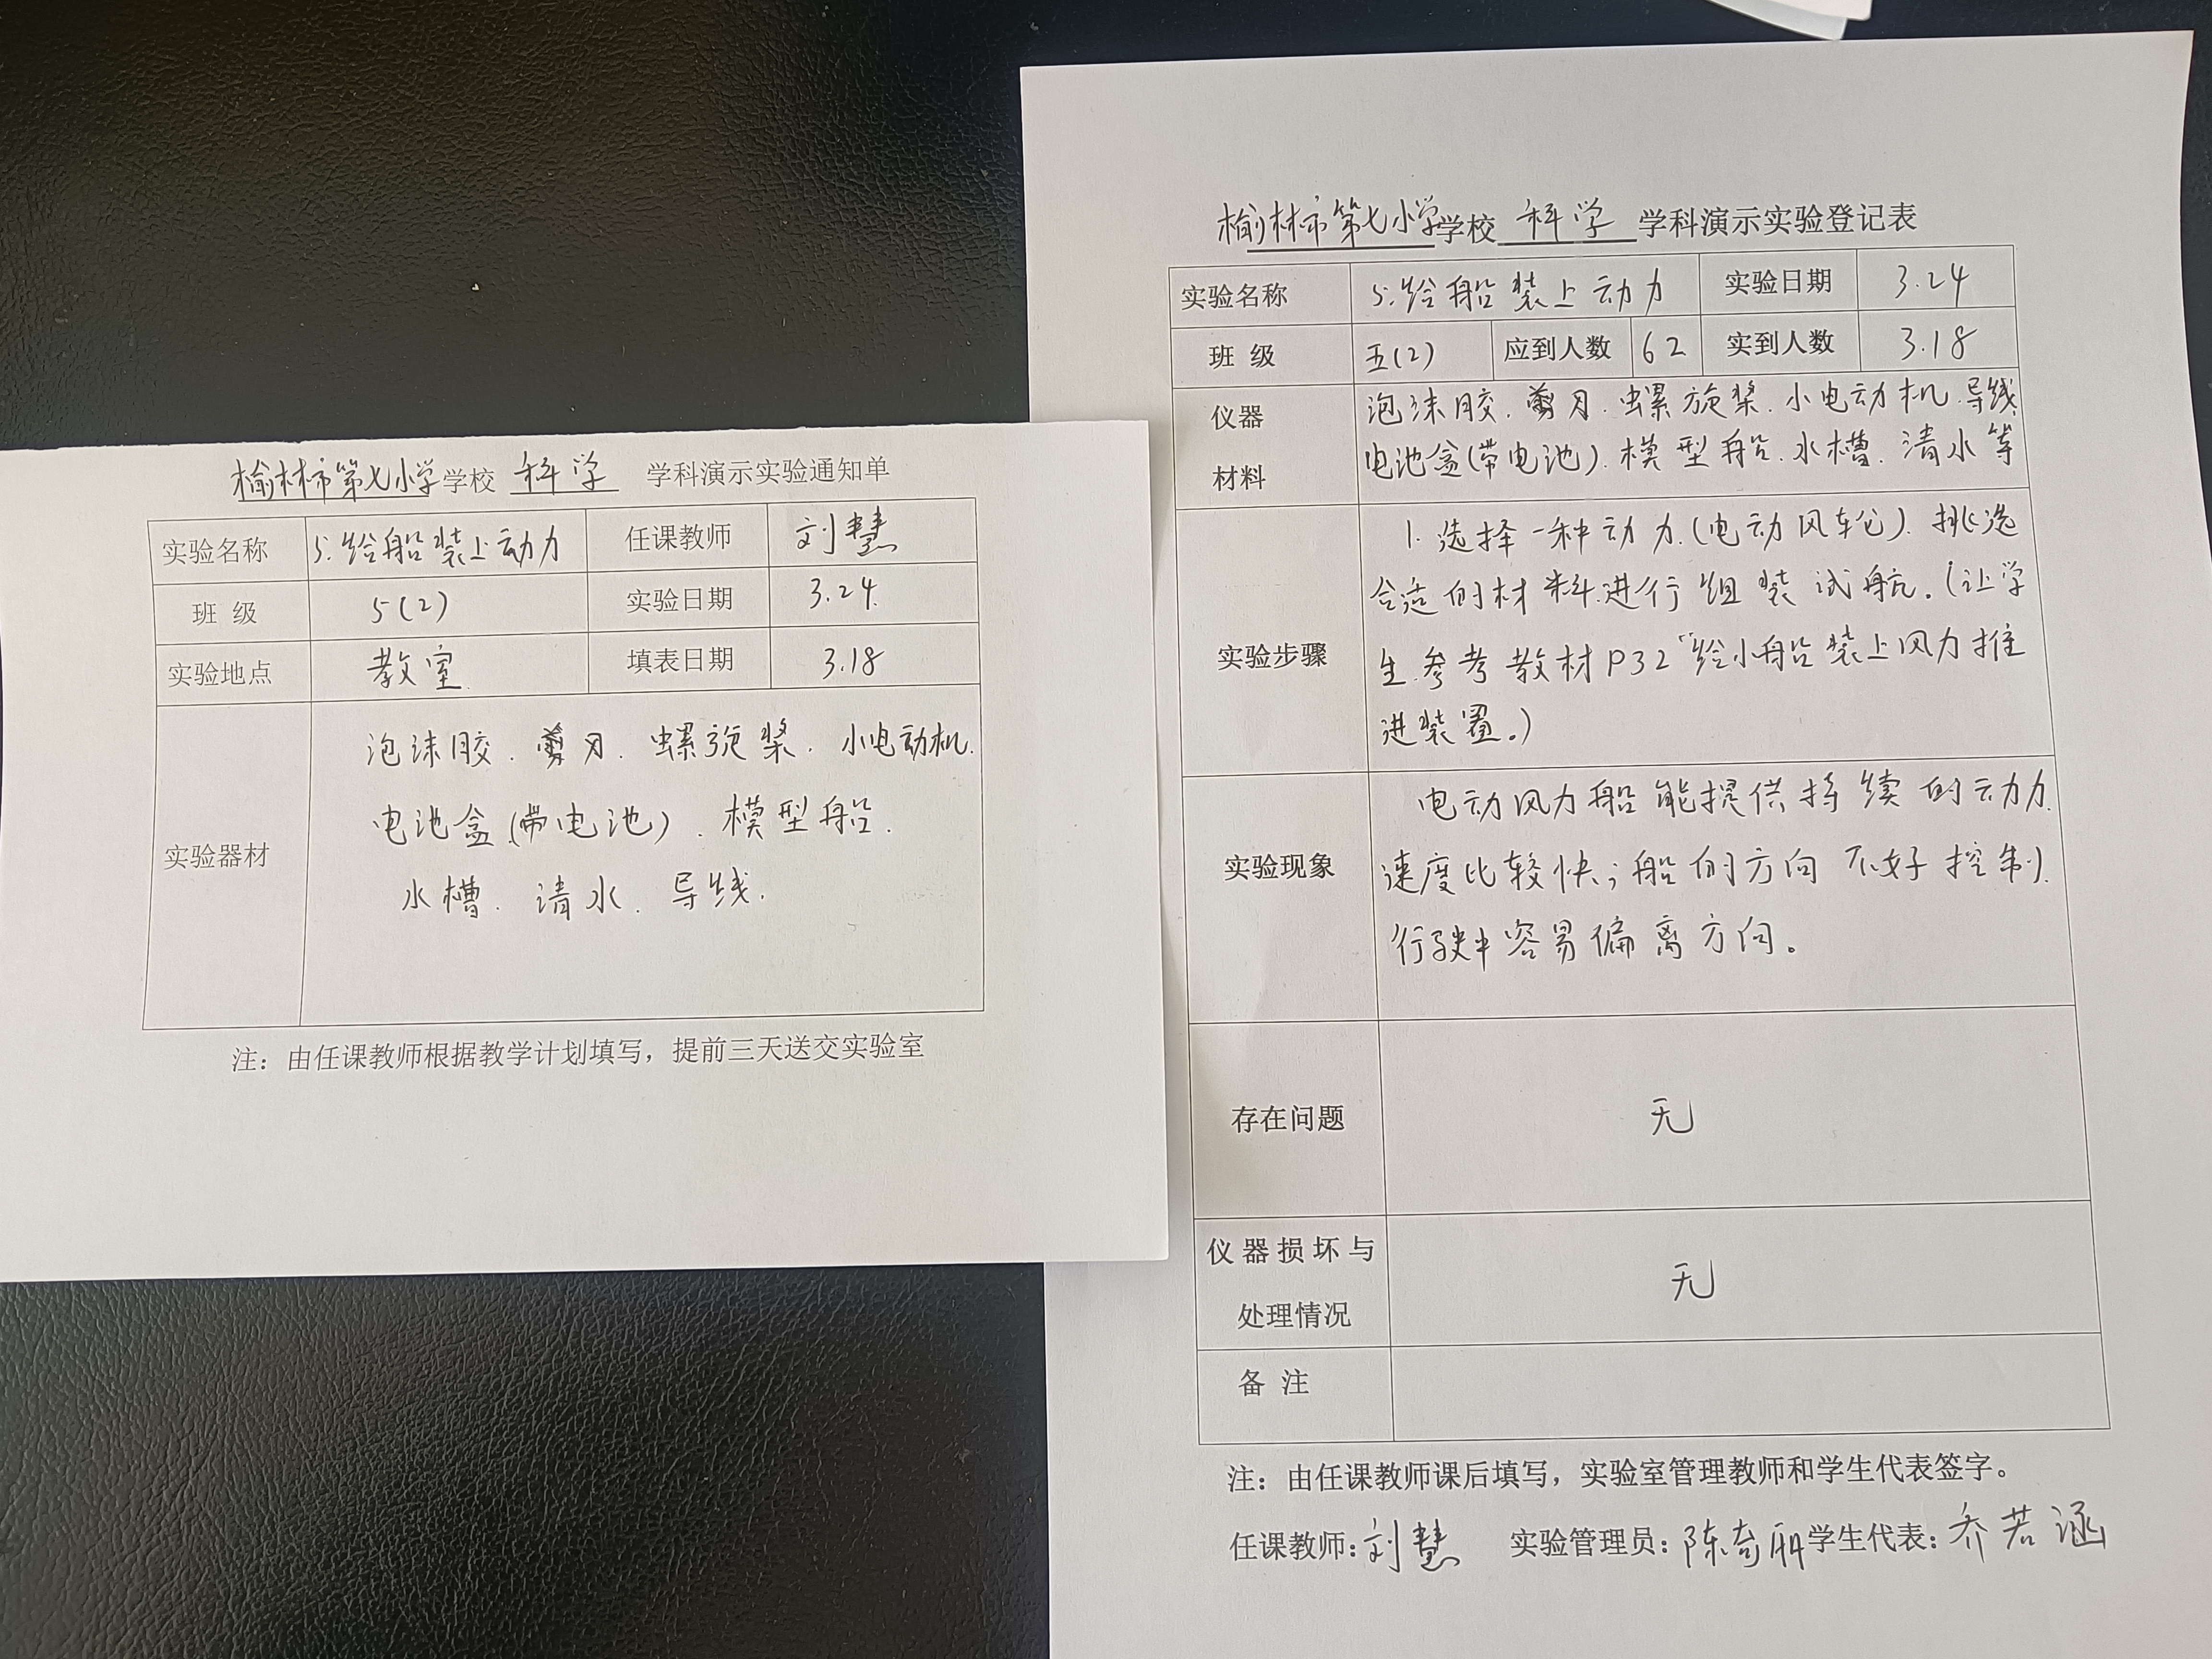 榆林市第七小学学校 科学 学科演示实验通知单
实验名称 5.给船装上动力 任课教师 刘慧
班 级 5(2) 实验日期 3.24.
实验地点 教室. 填表日期 3.18
实验器材
泡沫胶.剪刀.螺旋桨.小电动机.
电池盒(带电池).模型船.
水槽.清水.导线.
注：由任课教师根据教学计划填写，提前三天送交实验室
榆林市第七小学学校 科学 学科演示实验登记表
实验名称 5.给船装上动力 实验日期 3.24
班 级 五(2) 应到人数 62 实到人数 3.18
仪器
材料
泡沫胶.剪刀.螺旋桨.小电动机.导线.
电池盒(带电池).模型船.水槽.清水等
实验步骤
1.选择一种动力.(电动风轮).挑选
合适的材料.进行组装试航.(让学
生.参考教材P32“给小船装上风力推
进装置。)
实验现象
电动风力船能提供持续的动力.
速度比较快;船的方向不好控制.
行驶中容易偏离方向。
存在问题 无
仪器损坏与
处理情况
无
备 注
注：由任课教师课后填写，实验室管理教师和学生代表签字。
任课教师：刘慧 实验管理员：陈奇 学生代表：乔若涵